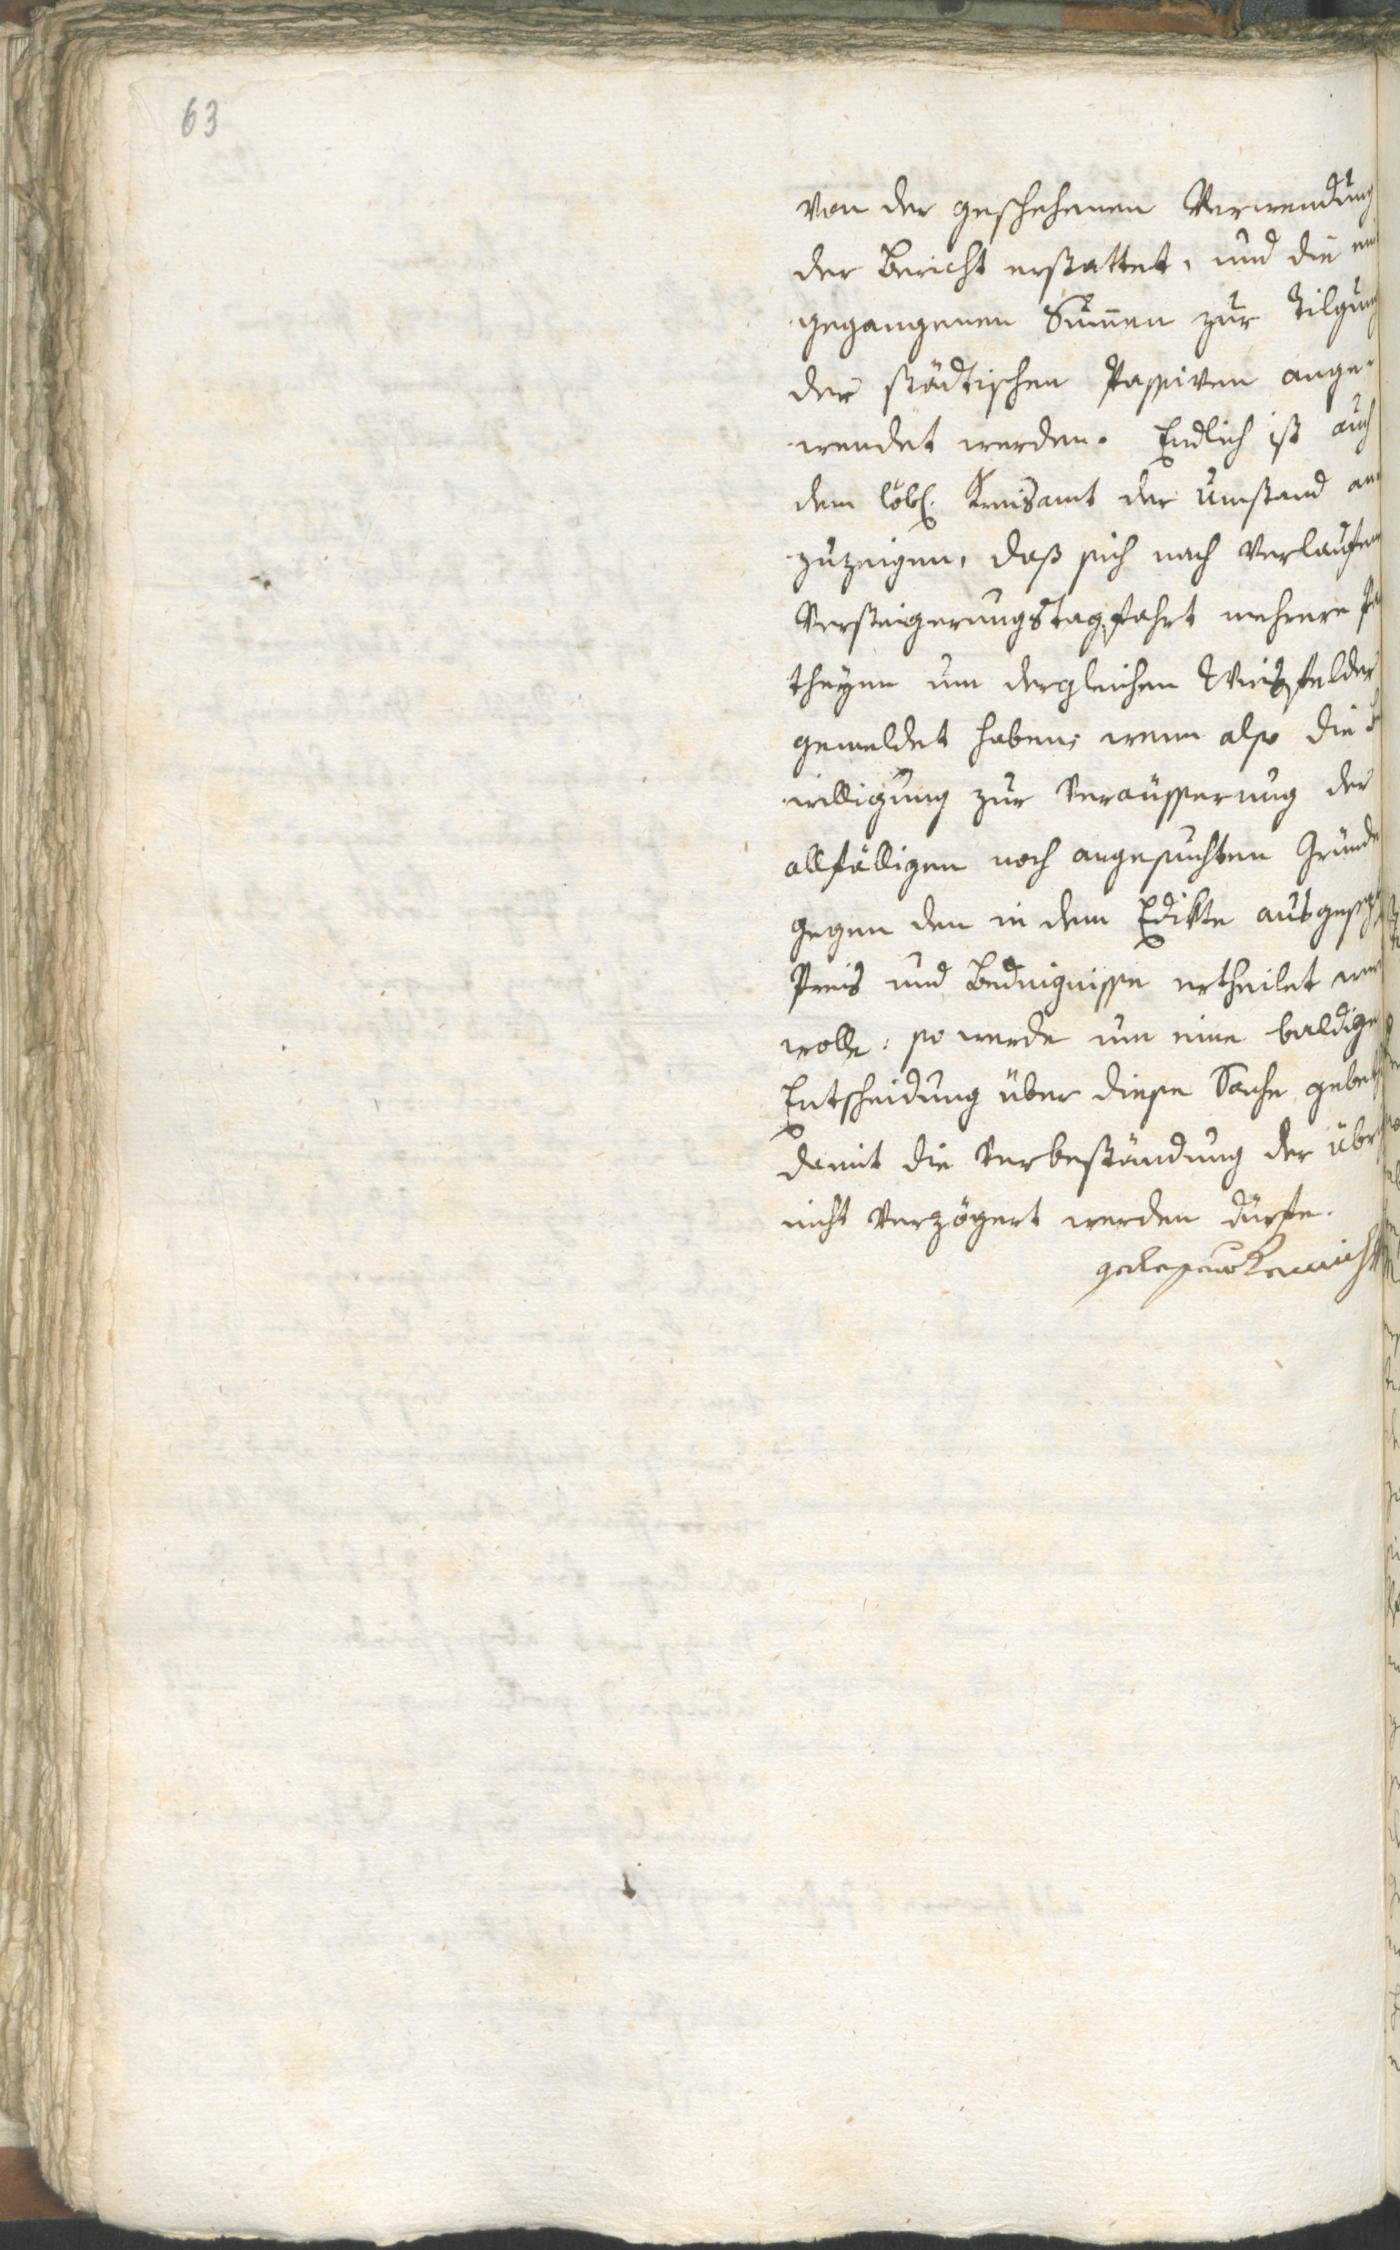 63
von der geschehenen Verwendung
der Bericht erstattet, und die ein
gegangenen Sum̄en zur Tilgung
der städtischen Passiven ange-
wendet werden. Endlich ist auch
dem löbl. Kreisamt der Umstand an
zuzeigen, daß sich nach verlaufener
Versteigerungstagfahrt mehrere Par
theyen um dergleichen Wiesfelder
gemeldet haben; wenn also die Be
willigung zur Veräusserung der
allfälligen noch angesuchten Gründe
gegen den in dem Edikte ausgesezten
Preis und Bedingnisse ertheilet werden
wolle: so werde um eine baldige
Entscheidung über diese Sache gebethen
damit die Verbeständung der übrigen
nicht verzögert werden dürfte.